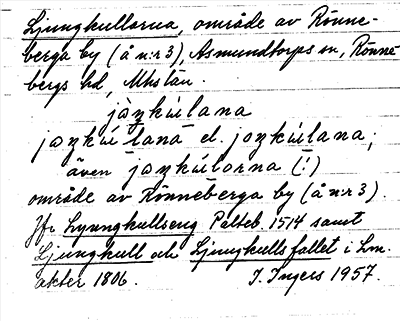 Ljungkullarna, område av Rönne-
berga by (å n:r 3), Asmundtorps sn, Rönne-
bergs hd, Mhs län.
jàŋkúlana
jaŋkúlana el. jɔŋkúlana;
även jaŋkúlɔrna (!)
område av Rönneberga by (å n:r 3).
Jfr Lyungkullseng Palteb. 1514 samt
Ljungkull och Ljungkulls fallet i Lm.
akter 1806. I. Ingers 1957.